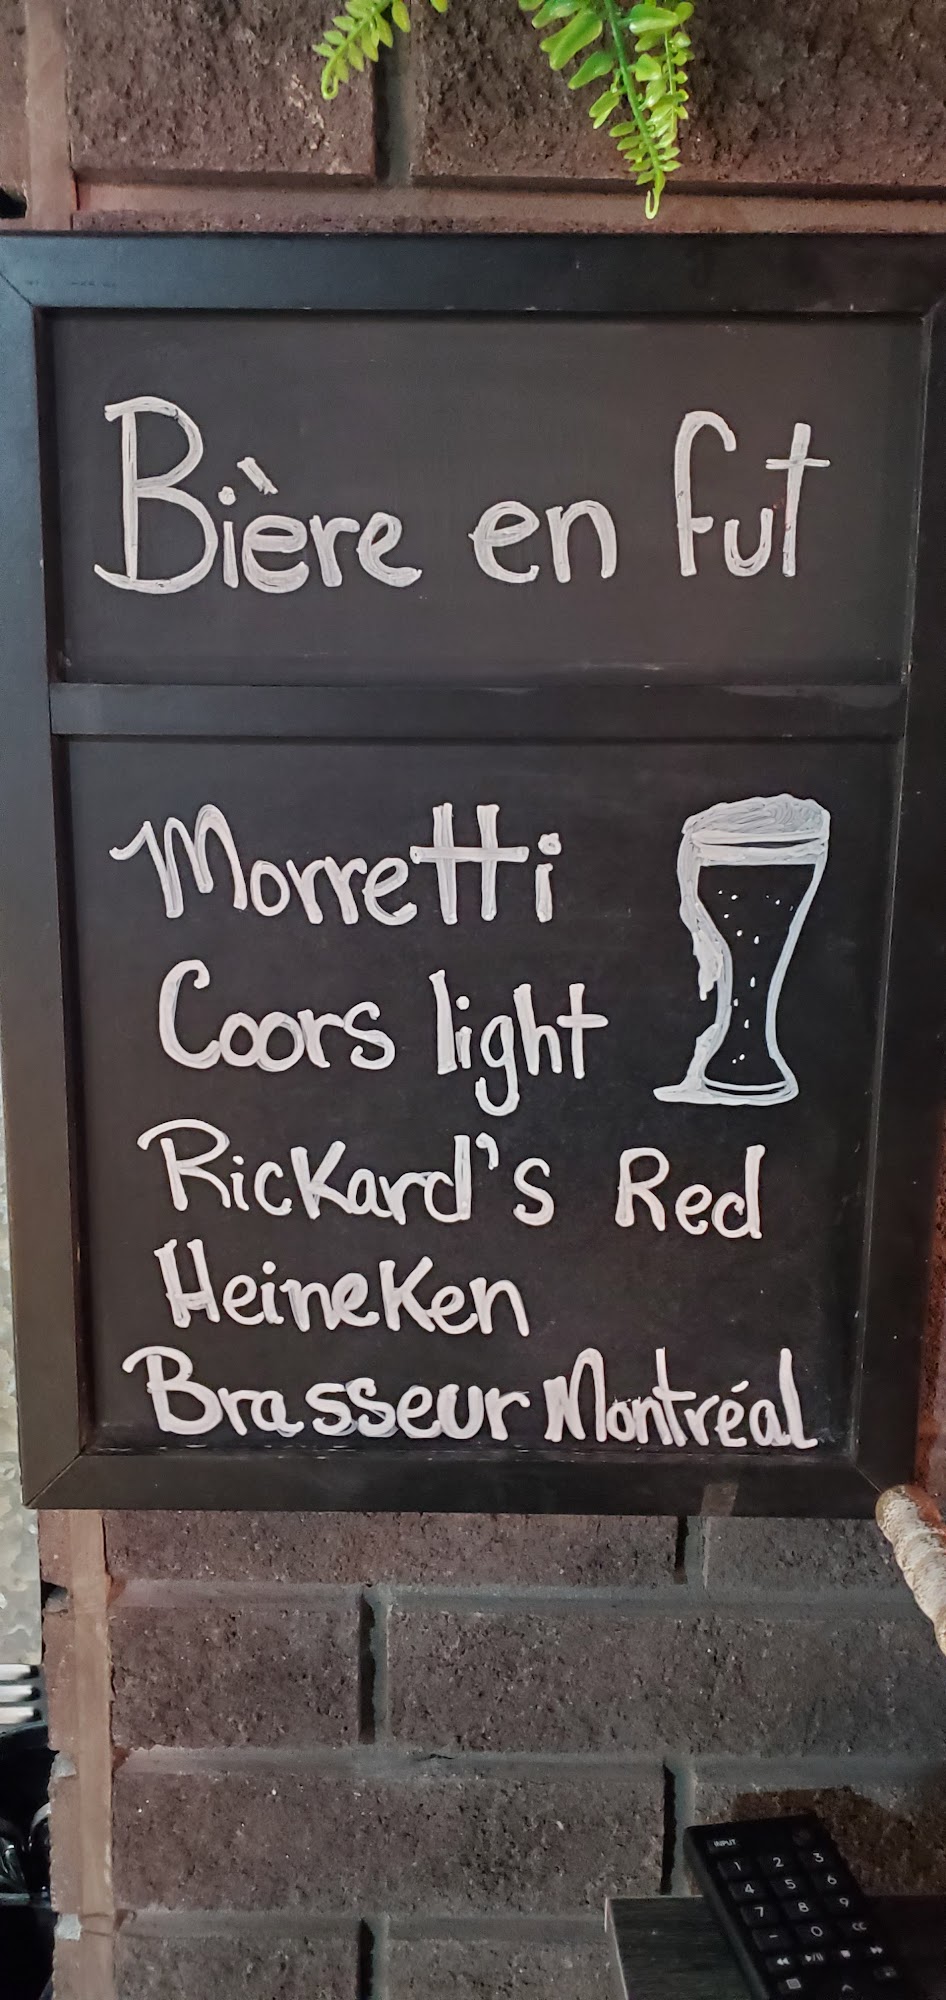 Bière en fut
Morretti
Coors light
Rickard's Red
Heineken
Brasseur Montréal
INPUT
1 2 3
4 5 6
7 8 9
- 0 CC